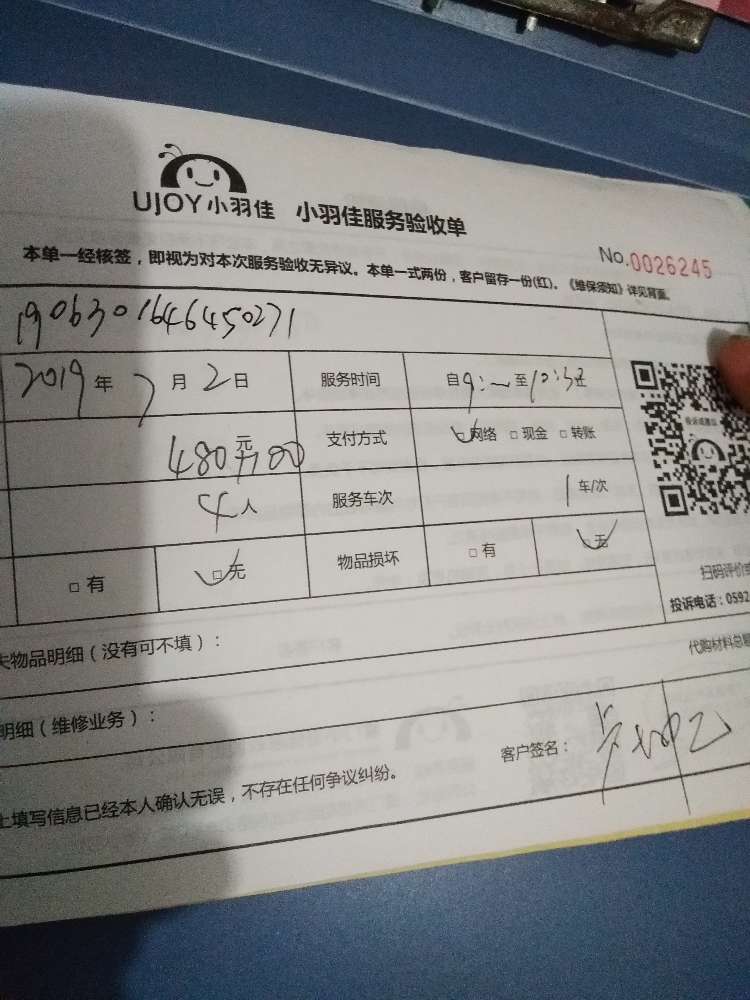 UJOY小羽佳 小羽佳服务验收单
No.0026245
本单一经核签，即视为对本次服务验收无异议。本单一式两份，客户留存一份(红)。《维保须知》详见背面。
1906301646450271
2019年7月2日 服务时间 自9:一至10:32
480元 支付方式 网络 □现金 □转账
4人 服务车次 1车/次
□有 □无 物品损坏 □有 □无
扫码评价
投诉电话：0592
失物品明细（没有可不填）：
代购材料总额
明细（维修业务）：
客户签名：
上填写信息已经本人确认无误，不存在任何争议纠纷。